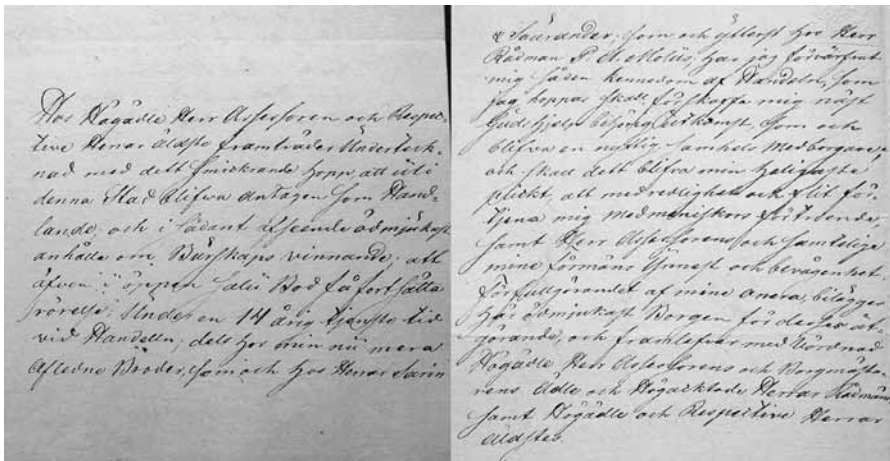 Hos Högädle Herr Assessoren och Respec-
tive Herrar Äldste framträder Underteck-
nad med dett smickrande hopp, att uti
denna Stad blifwa antagen som Hand-
lande; och i sådant afseende ödmjukast
anhålla om Burskaps vinnande; att
äfven i öppen Salu Bod få fortsätta
rörelse. Under en 14 årig tjenste tid
vid Handeln; dels hos min nu mera
Afledne Broder, som och hos Herrar Sarin
& Saurander, som och ytterst hos Herr
Rådman P. A. Molüs, har jag förvärfvat
mig sådan kennedom af Handeln, som
jag hoppas skall förskaffa mig näst
Guds hjelp bergning utkomst, som och
blifva en nyttig Samhels Medborgare,
och skall dett blifva min heligaste
plickt, att med redlighet och flit för-
tjena mig medmeniskors förtroende,
samt Herr Assessorens och samtelige
mine förmäns ynnest och bevågenhet.
För fullgörandet af mine onera, bilägges
här ödmjukast Borgen för desses åt-
görande, och framlefver med Vördnad
Högädle Herr Assessorens och Borgmästa-
rens Ädle och Högacktade Herrar Rådmäns
samt Högädle och Respective Herrar
Äldstes